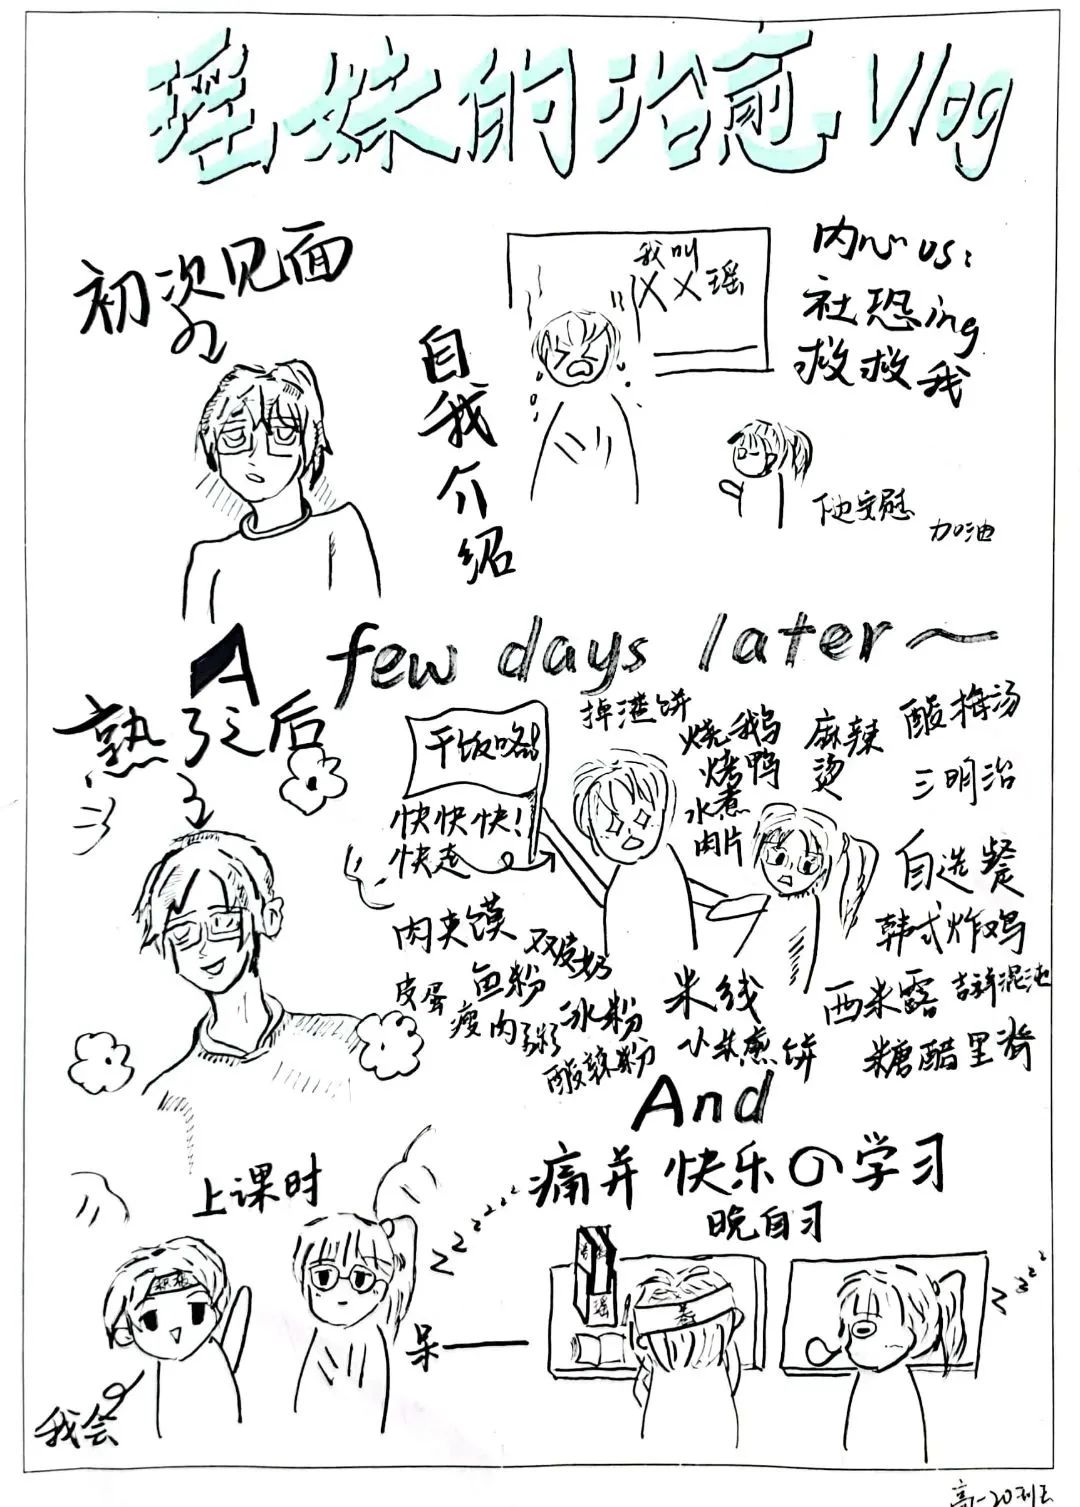 瑶妹的治愈Vlog
初次见面
自我介绍
我叫
XX瑶
内心os:
社恐ing
救救我
安慰
加油
A few days later~
熟了之后
干饭咯!
快快快!
快走
掉渣饼
烧鹅
烤鸭
水煮
肉片
麻辣
烫
酸梅汤
三明治
自选餐
韩式炸鸡
肉夹馍
双皮奶
皮蛋
瘦肉粥
鱼粉
冰粉
酸辣粉
米线
小米煎饼
西米露
吉祥混沌
糖醋里脊
And
痛并快乐の学习
上课时
积极
zzzzzzz
我会
呆——
晚自习
瑶
zzzz
高一20班